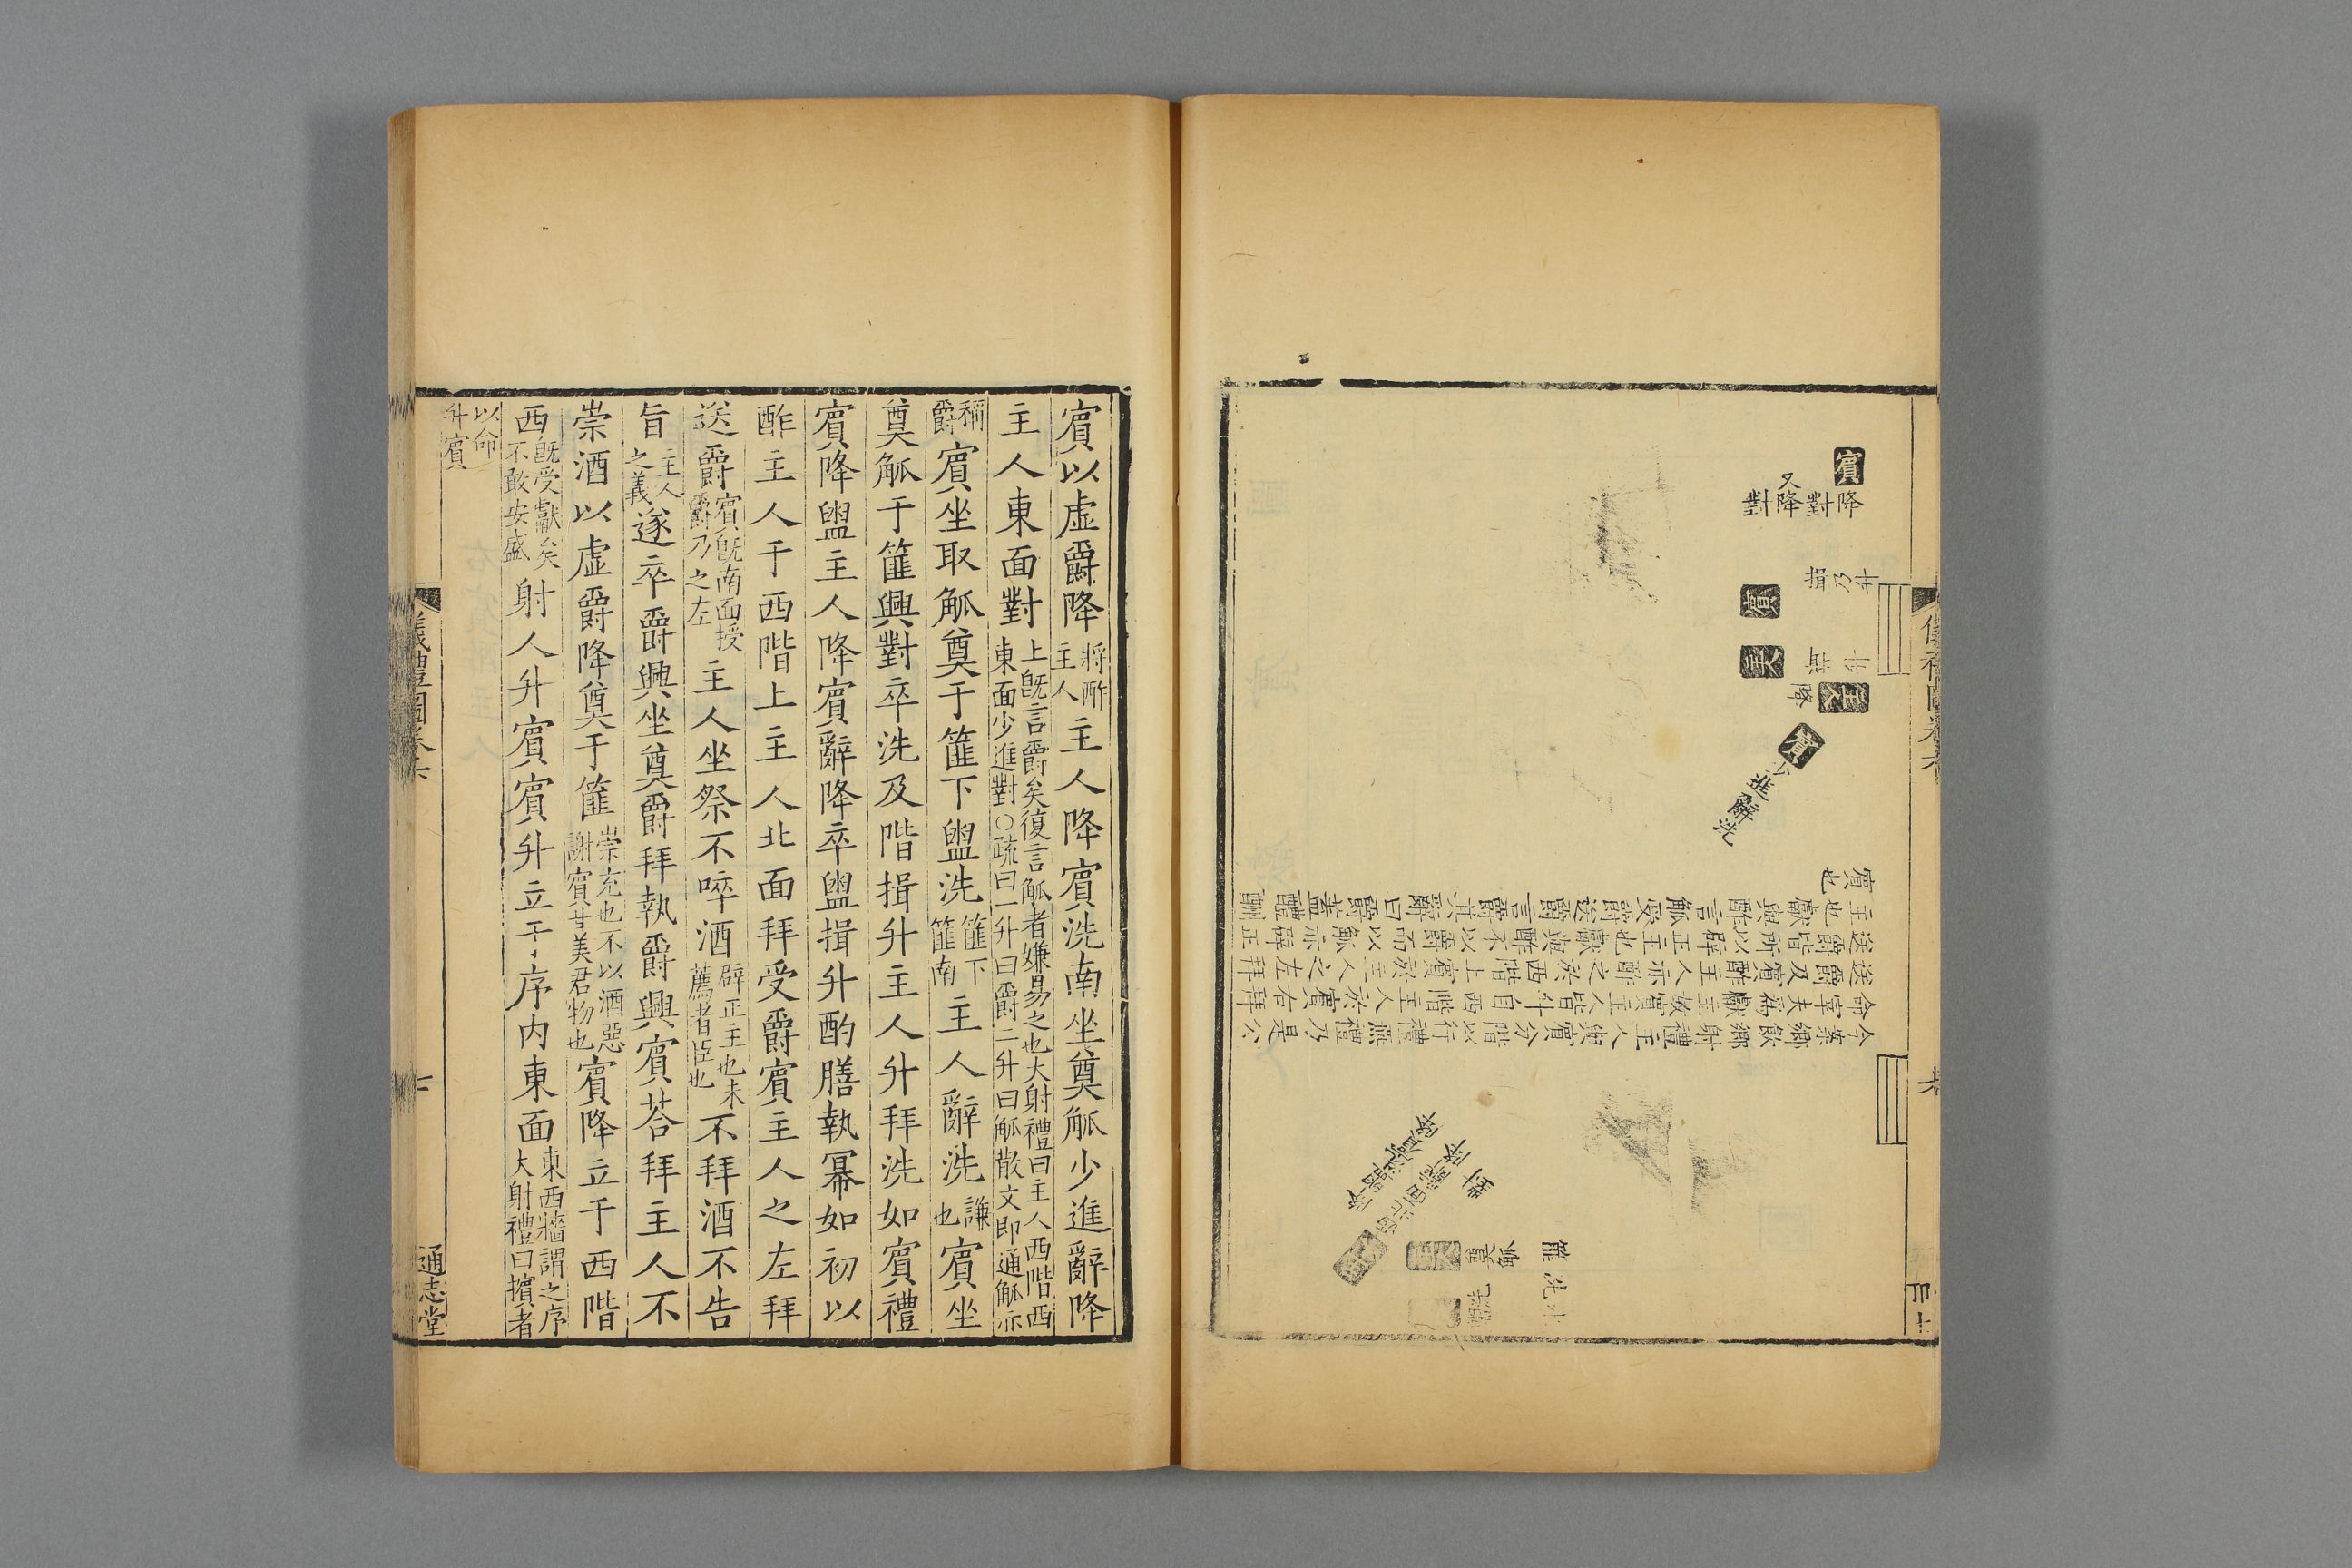 儀禮圖卷六
賓
降對
又降對
公揖
賓
主人
主人
降
賓
少進辭洗
今案鄉飲鄉射禮主人與賓分階以行禮燕禮乃是公
命宰夫爲獻主故賓主人皆升自西階主人於賓右拜
送爵及賓酢主人亦酢之於西階上賓於主人之左拜
送爵皆所以辟正主也獻與酢不以爵而以觚亦辟正
主也獻與酢言觚受爵送爵言爵其辭曰爵蓋醴酬
賓也
賓以虛爵降將酢主人主人降賓洗南坐奠觚少進辭降
主人東面對上旣言爵矣復言觚者嫌易之也大射禮曰主人西階西東面少進對○疏曰一升曰爵二升曰觚散文即通觚亦
稱爵賓坐取觚奠于篚下盥洗篚下篚南主人辭洗謙也賓坐
奠觚于篚興對卒洗及階揖升主人升拜洗如賓禮
賓降盥主人降賓辭降卒盥揖升酌膳執冪如初以
酢主人于西階上主人北面拜受爵賓主人之左拜
送爵賓旣南面授爵乃之左主人坐祭不啐酒辟正主也未薦者臣也不拜酒不告
旨主人之義遂卒爵興坐奠爵拜執爵興賓荅拜主人不
崇酒以虛爵降奠于篚崇充也不以酒惡謝賓甘美君物也賓降立于西階
西旣受獻矣不敢安盛射人升賓賓升立于序内東面東西牆謂之序大射禮曰擯者
以命升賓
儀禮圖卷六
通志堂